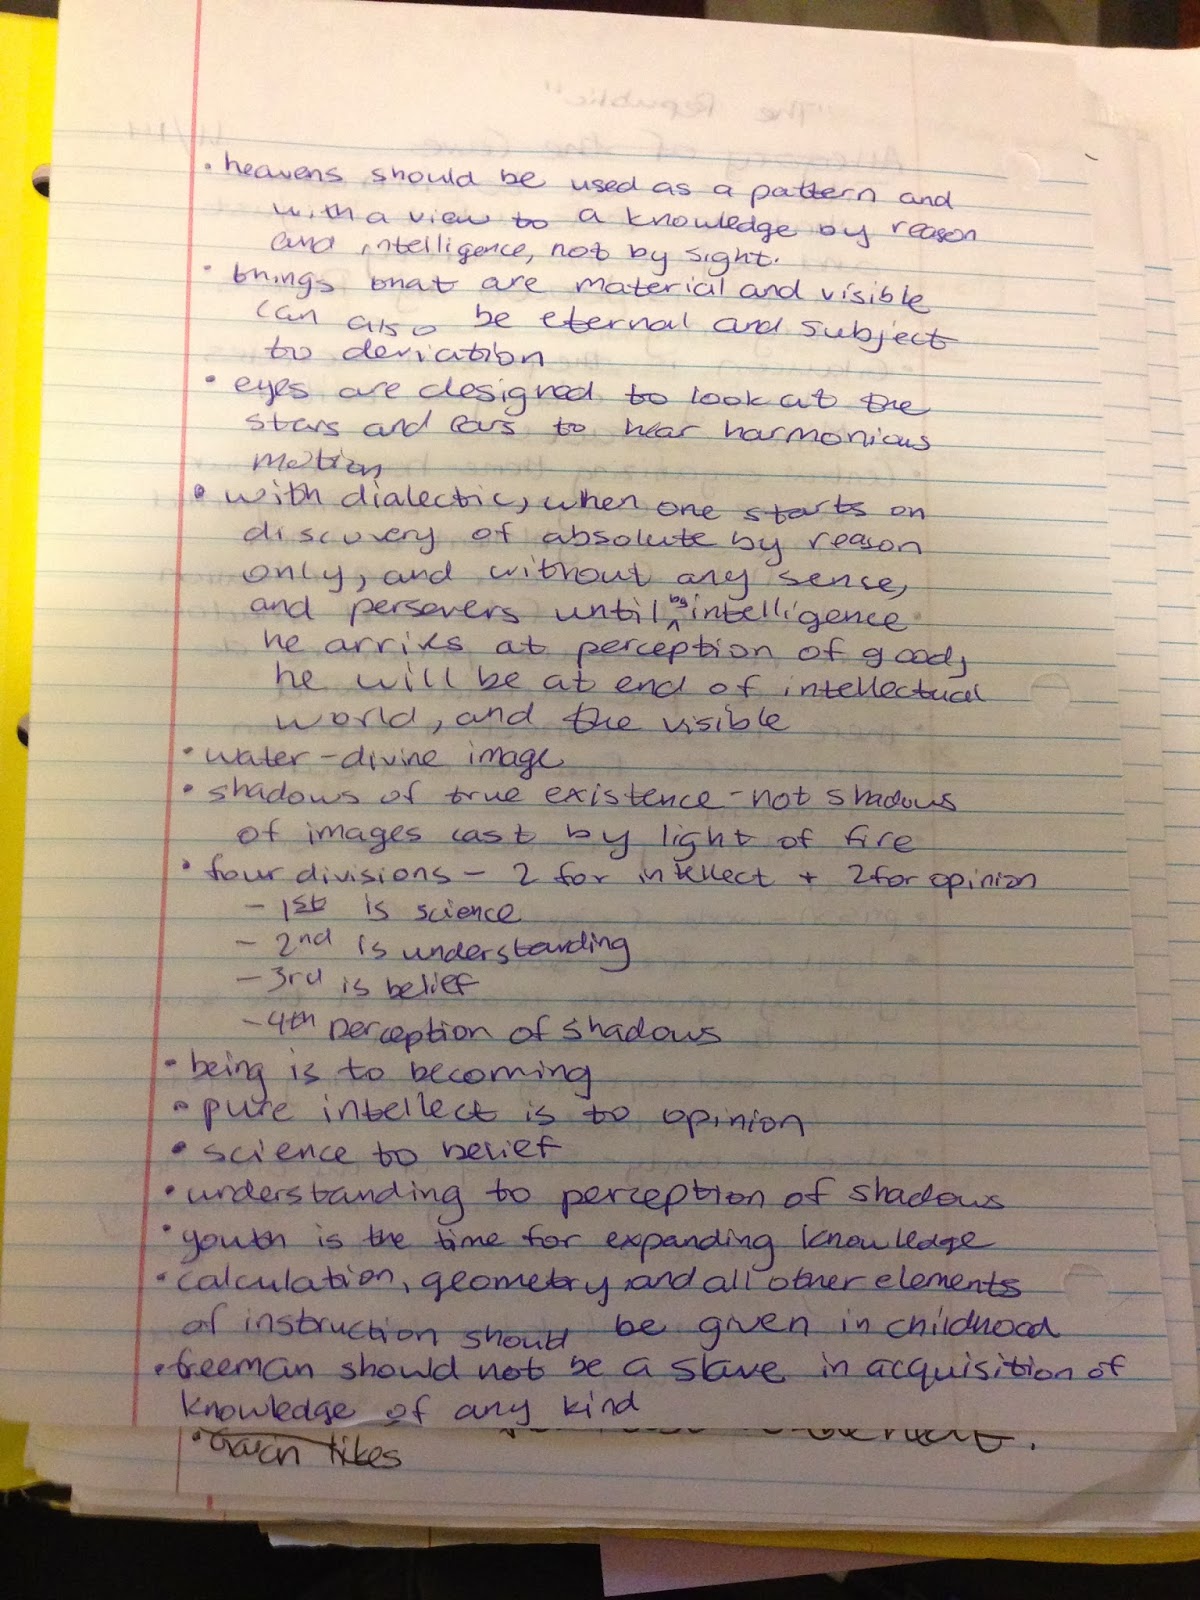 • heavens should be used as a pattern and
with a view to a knowledge by reason
and intelligence, not by sight.
• things that are material and visible
can also be eternal and subject
to deviation
• eyes are designed to look at the
stars and ears to hear harmonious
motion
• with dialectic, when one starts on
discovery of absolute by reason
only, and without any sense,
and persevers until by intelligence
he arrives at perception of good,
he will be at end of intellectual
world, and the visible
• water - divine image
• shadows of true existence - not shadows
of images cast by light of fire
• four divisions - 2 for intellect + 2 for opinion
- 1st is science
- 2nd is understanding
- 3rd is belief
- 4th perception of shadows
• being is to becoming
• pure intellect is to opinion
• science to belief
• understanding to perception of shadows
• youth is the time for expanding knowledge
• calculation, geometry, and all other elements
of instruction should be given in childhood
• freeman should not be a slave in acquisition of
knowledge of any kind
likes